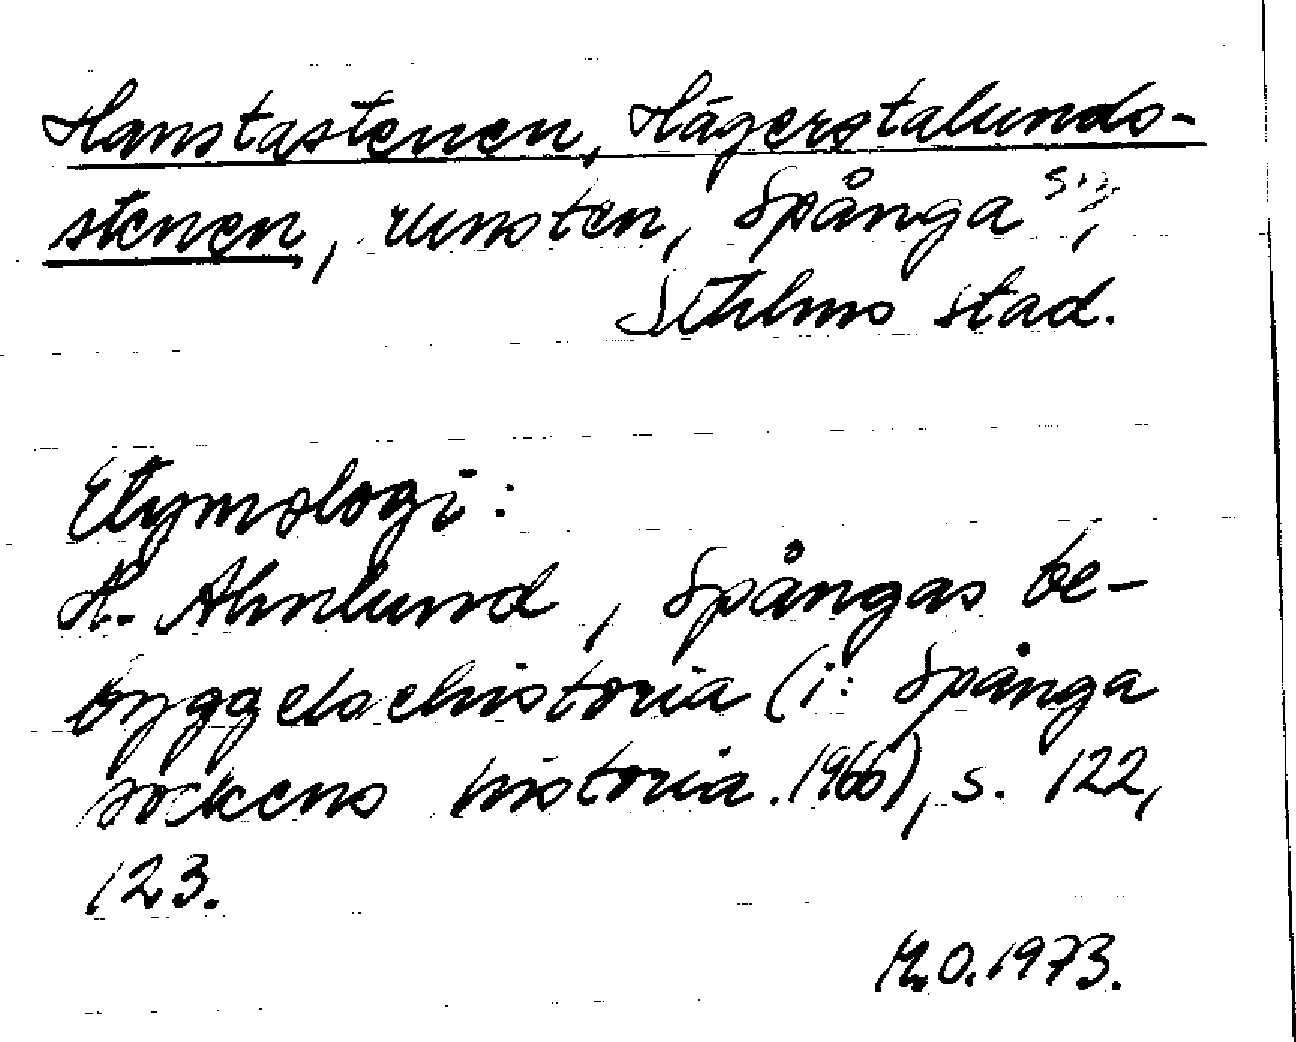 Hanstastenen, Hägerstalunds-
stenen, runsten, Spånga sn,
Sthlms stad.
Etymologi:
H. Ahnlund, Spångas be-
byggelsehistoria (i: Spånga
sockens historia. 1966), s. 122,
123.
M.O. 1973.